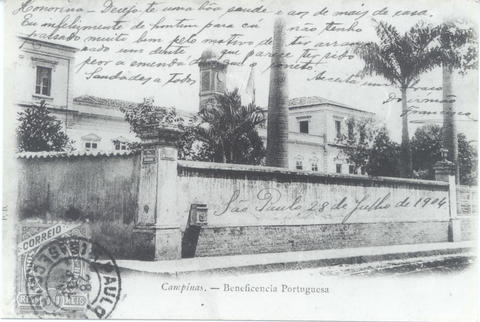 Honorina - Desejo-te uma bôa saude e aos de mais de casa.
Eu infelizmente de hontem para cá não tenho
passado muito bem pelo motivo de ter arran
cado um dente que parece ter sido
peor a emenda do que o soneto
Saudades a todos
Aceita um abraço
Do irmão
São Paulo 28 de Julho de 1904
CORREIO
REIS
S. PAULO
28
Campinas. — Beneficencia Portugueza